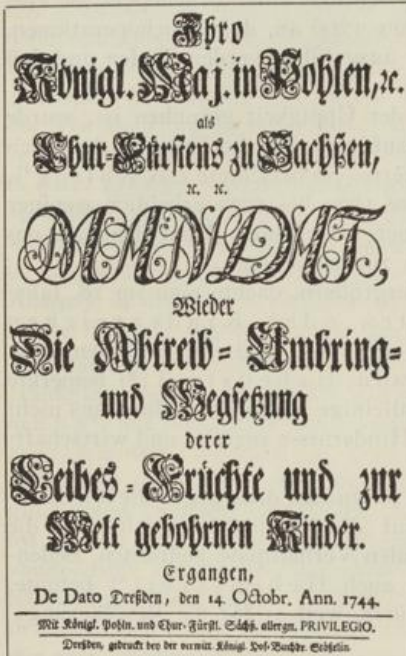 Ihro
Königl. Maj. in Pohlen, ꝛc.
als
Chur-Fürstens zu Sachßen,
ꝛc. ꝛc.
MANDAT,
Wieder
Die Abtreib- Umbring-
und Wegsetzung
derer
Leibes-Früchte und zur
Welt gebohrnen Kinder.
Ergangen,
De Dato Dreßden, den 14. Octobr. Ann. 1744.
Mit Königl. Pohln. und Chur-Fürstl. Sächß. allergn. PRIVILEGIO.
Dreßden, gedruckt bey der verwitt. Königl. Hof-Buchdr. Stößelin.